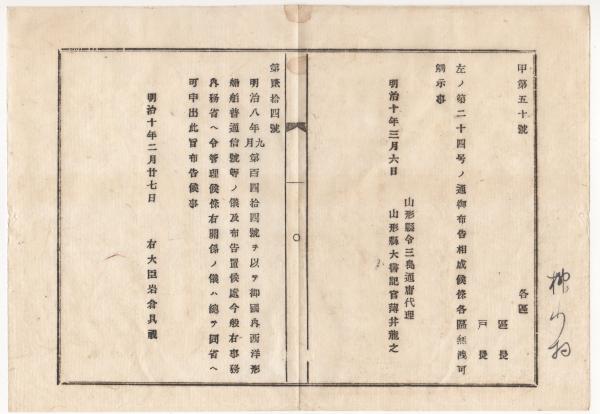 甲第五十號
各區
區長
戸長
左ノ第二十四号ノ通御布告相成候條各區無洩可
觸示事
明治十年三月六日
山形縣令三島通庸代理
山形縣大書記官薄井龍之
第貳拾四號
明治八年九月第百四拾四號ヲ以テ御國內西洋形
船舶普通信號等ノ儀及布告置候處今般右事務
內務省ヘ令管理候條右關係ノ儀ハ總テ同省ヘ
可申出此旨布告候事
明治十年二月廿七日
右大臣岩倉具視